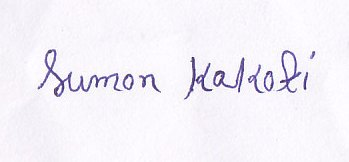 Sumon Kakoti